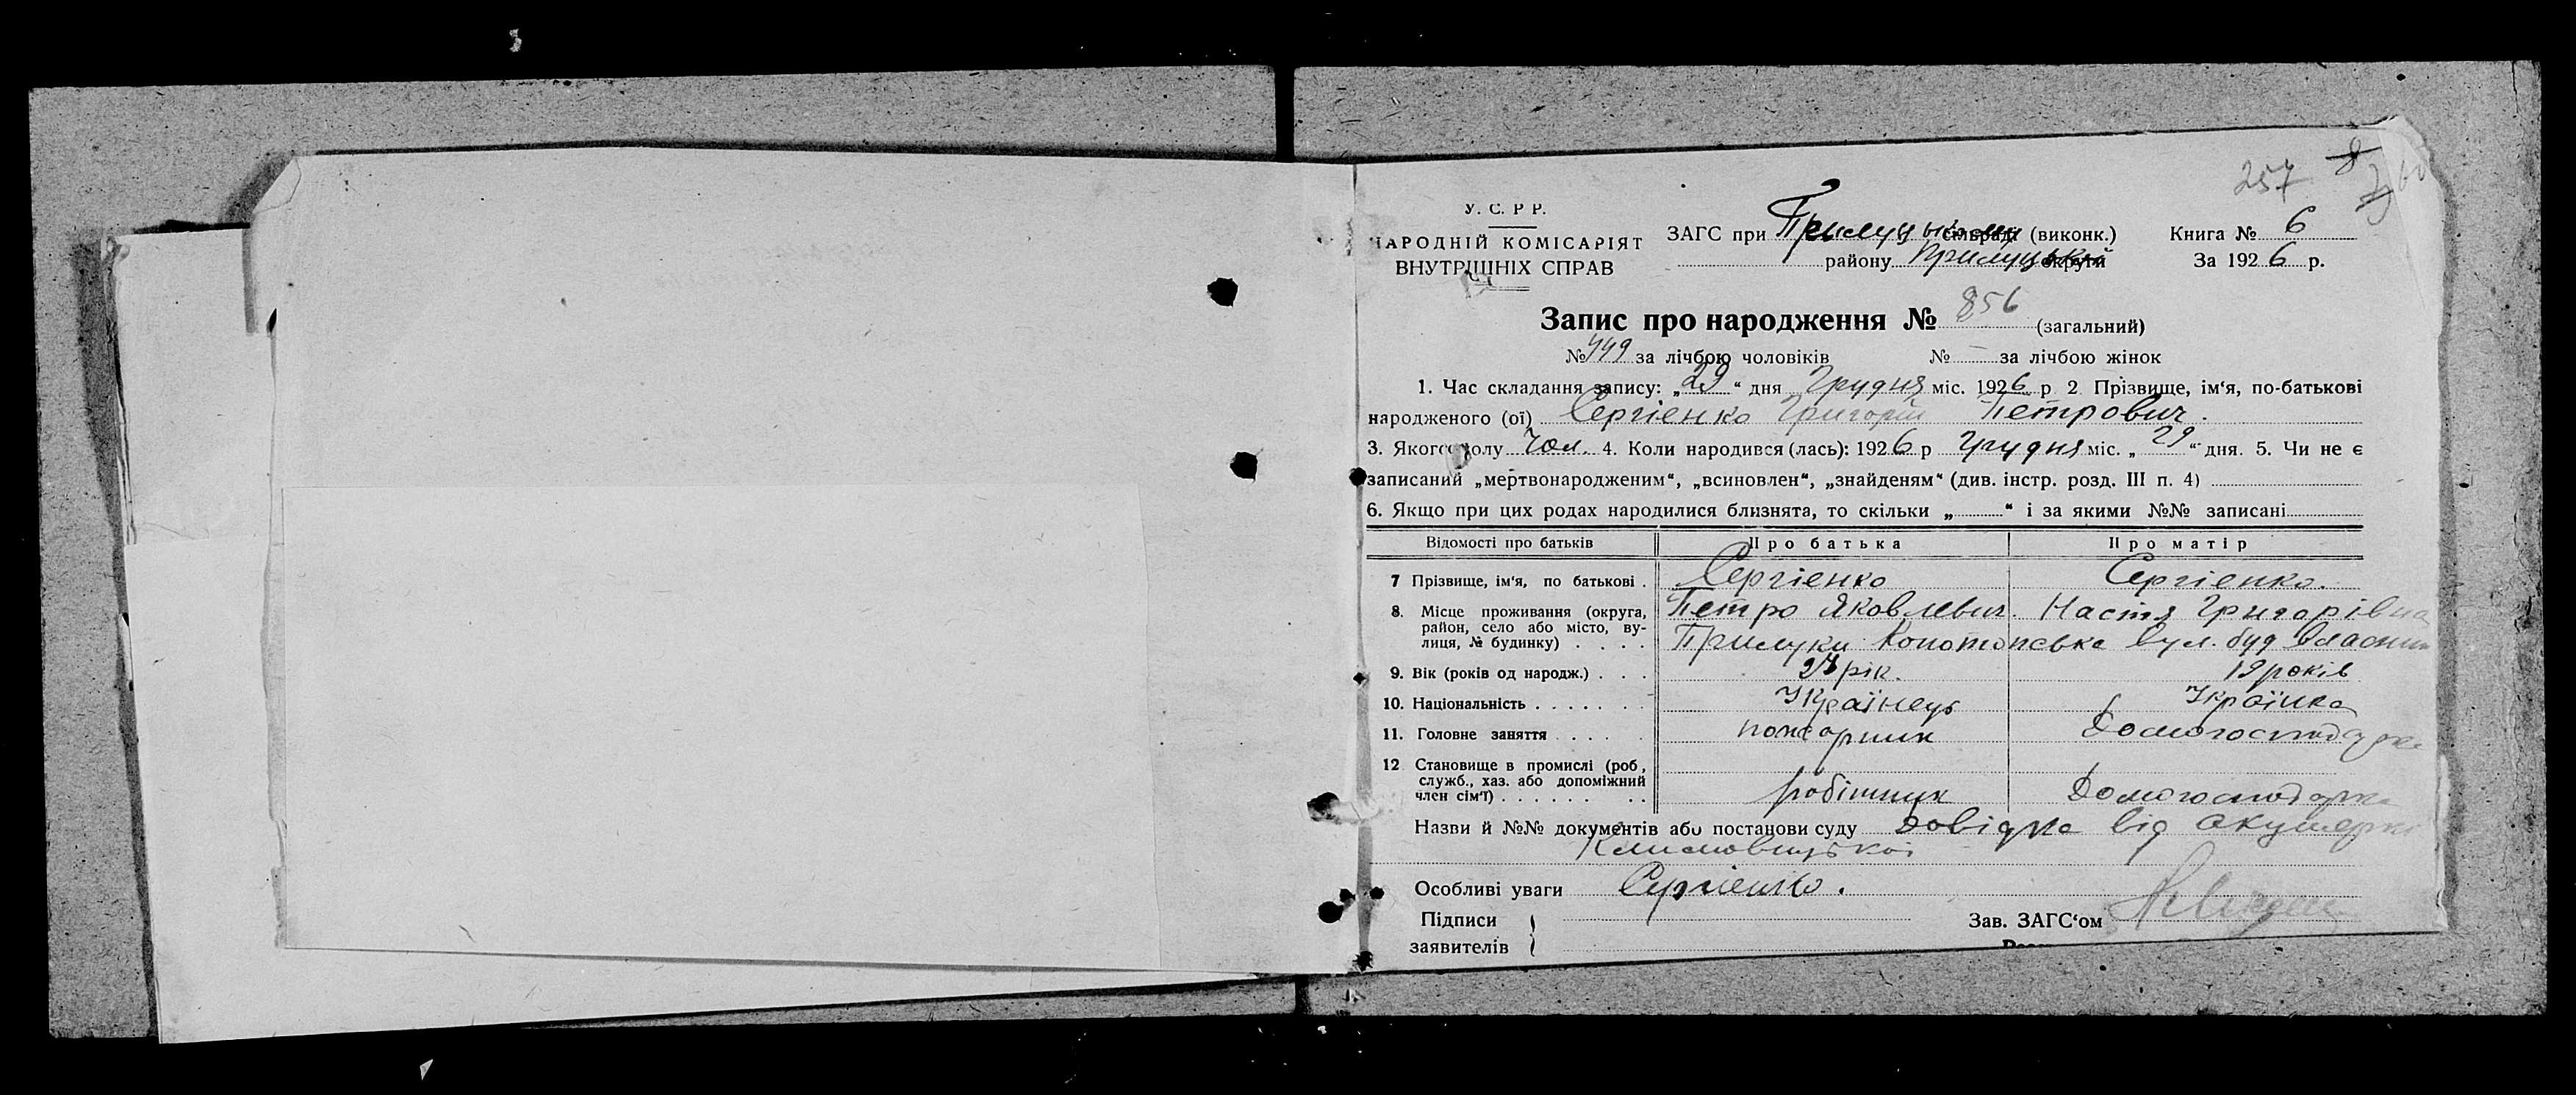 257 8
У. С. Р Р.
НАРОДНІЙ КОМІСАРІЯТ
ВНУТРІШНІХ СПРАВ
ЗАГС при Прилуцькому сільраді (виконк.) Книга № 6
району Прилуцької округи За 1926 р.
Запис про народження № 856 (загальний)
№ 449 за лічбою чоловіків № — за лічбою жінок
1. Час складання запису: „29“ дня Грудня міс. 1926 р 2. Прізвище, ім‘я, по-батькові
народженого (ої) Сергіенко Григорій Петрович.
3. Якого полу Чол. 4. Коли народився (лась): 1926 р Грудня міс. „29“ дня. 5. Чи не є
записаний „мертвонародженим“, „всиновлен“, „знайденям“ (див. інстр. розд. III п. 4)
6. Якщо при цих родах народилися близнята, то скільки „ “ і за якими №№ записані
Відомості про батьків Про батька Про матір
7 Прізвище, ім‘я, по батькові . Сергіенко Сергіенко.
8. Місце проживання (округа, Петро Яковлевич. Настя Григорівна
район, село або місто, ву-
лиця, № будинку) . . . . Прилуки Конотопська вул. буд
9. Вік (років од народж.) . . . рік. 19 років
10. Національність . . . . . . . Українець Українка
11. Головне заняття . . . . . пожарник Домогосподарка
12 Становище в промислі (роб,
служб., хаз. або допоміжний
член сім‘ї) . . . . . . . . робітник Домогосподарка
Назви й №№ документів або постанови суду Довідка від акушерки
Климовицької
Особливі уваги Сергіенко.
Підписи
заявителів
Зав. ЗАГС‘ом